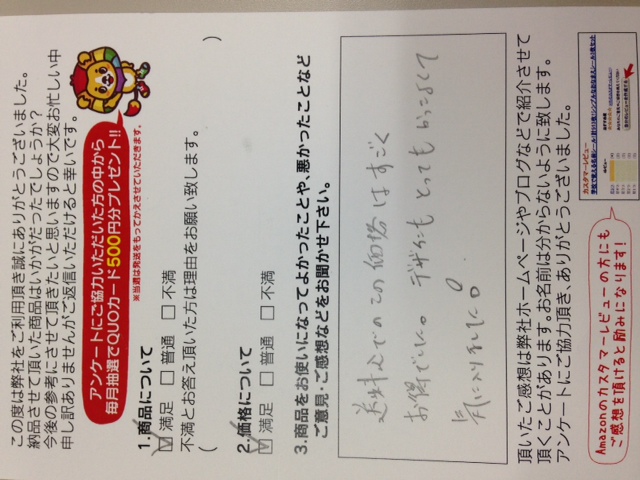 この度は弊社をご利用頂き誠にありがとうございました。
納品させて頂いた商品はいかがだったでしょうか？
今後の参考にさせて頂きたいと思いますので大変お忙しい中
申し訳ありませんがご返信いただけると幸いです。
アンケートにご協力いただいた方の中から
毎月抽選でQUOカード500円分プレゼント!!
※当選は発送をもってかえさせていただきます。
1.商品について
☑満足 □普通 □不満
不満とお答え頂いた方は理由をお願い致します。
( )
2.価格について
☑満足 □普通 □不満
3.商品をお使いになってよかったことや、悪かったことなど
ご意見・ご感想などをお聞かせ下さい。
送料込でのこの価格はすごく
お得でした。デザインもとってもかっこよくて
気に入りました。
頂いたご感想は弊社ホームページやブログなどで紹介させて
頂くことがあります。お名前は分からないように致します。
アンケートにご協力頂き、ありがとうございました。
カスタマーレビュー
Amazonのカスタマーレビューの方にも
ご感想を頂けると励みになります!